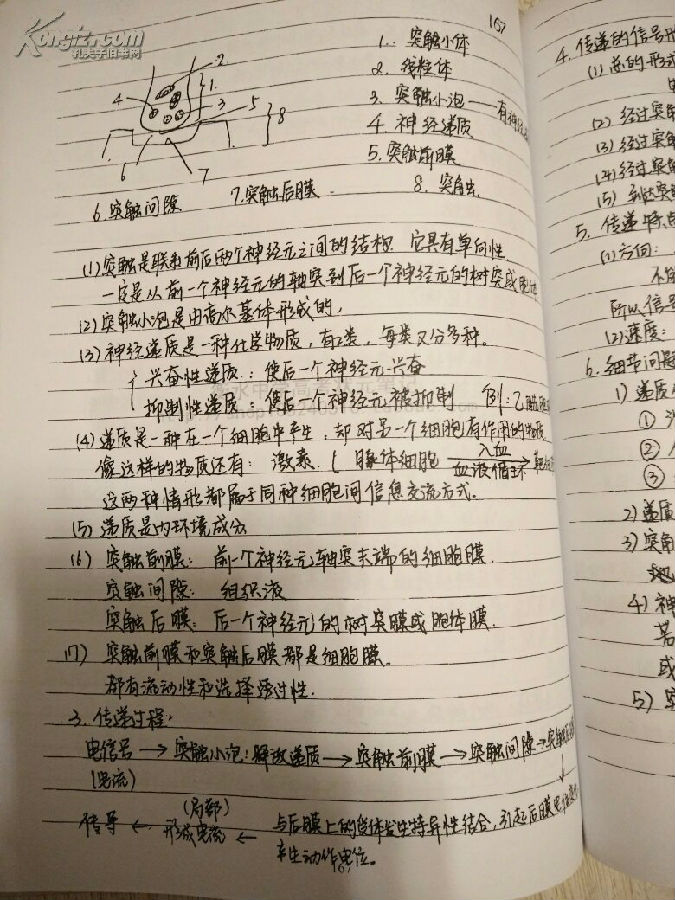 Kongfz.com
孔夫子旧书网
167
1. 突触小体
2. 线粒体
3. 突触小泡——有神经
4. 神经递质
5. 突触前膜
6. 突触间隙 7. 突触后膜 8. 突触
2
1.
4
3
5
8
6
7
(1) 突触是联系前后两个神经元之间的结构 它具有单向性
一定是从前一个神经元的轴突到后一个神经元的树突或胞体
(2) 突触小泡是由高尔基体形成的,
(3) 神经递质是一种化学物质, 有2类, 每类又分多种.
兴奋性递质: 使后一个神经元兴奋
抑制性递质: 使后一个神经元被抑制 例: 乙酰胆
(4) 递质是一种在一个细胞中产生, 却对另一个细胞有作用的物质.
像这样的物质还有: 激素. ( 胰体细胞 入血 血液循环
这两种情形都属于同种细胞间信息交流方式.
(5) 递质是内环境成分
(6) 突触前膜: 前一个神经元轴突末端的细胞膜.
突触间隙: 组织液
突触后膜: 后一个神经元的树突膜或胞体膜.
(7) 突触前膜和突触后膜都是细胞膜.
都有流动性和选择透过性.
3. 传递过程:
电信号 → 突触小泡: 释放递质 → 突触前膜 → 突触间隙 → 突触后膜
(电流)
↓
传导 ← (局部) 形成电流 ← 与后膜上的受体发生特异性结合, 引起后膜电位变化
产生动作电位。
167
4. 传递的信号
(1) 总的形式
(2) 经过突
(3) 经过突触
(4) 经过突触
(5) 到达突
5. 传递特点
(1) 方向:
不
所以信号
(2) 速度:
6. 细节问题
1) 递质
①
②
③
2) 递质
3) 突触
4) 神
若
或
5) 突